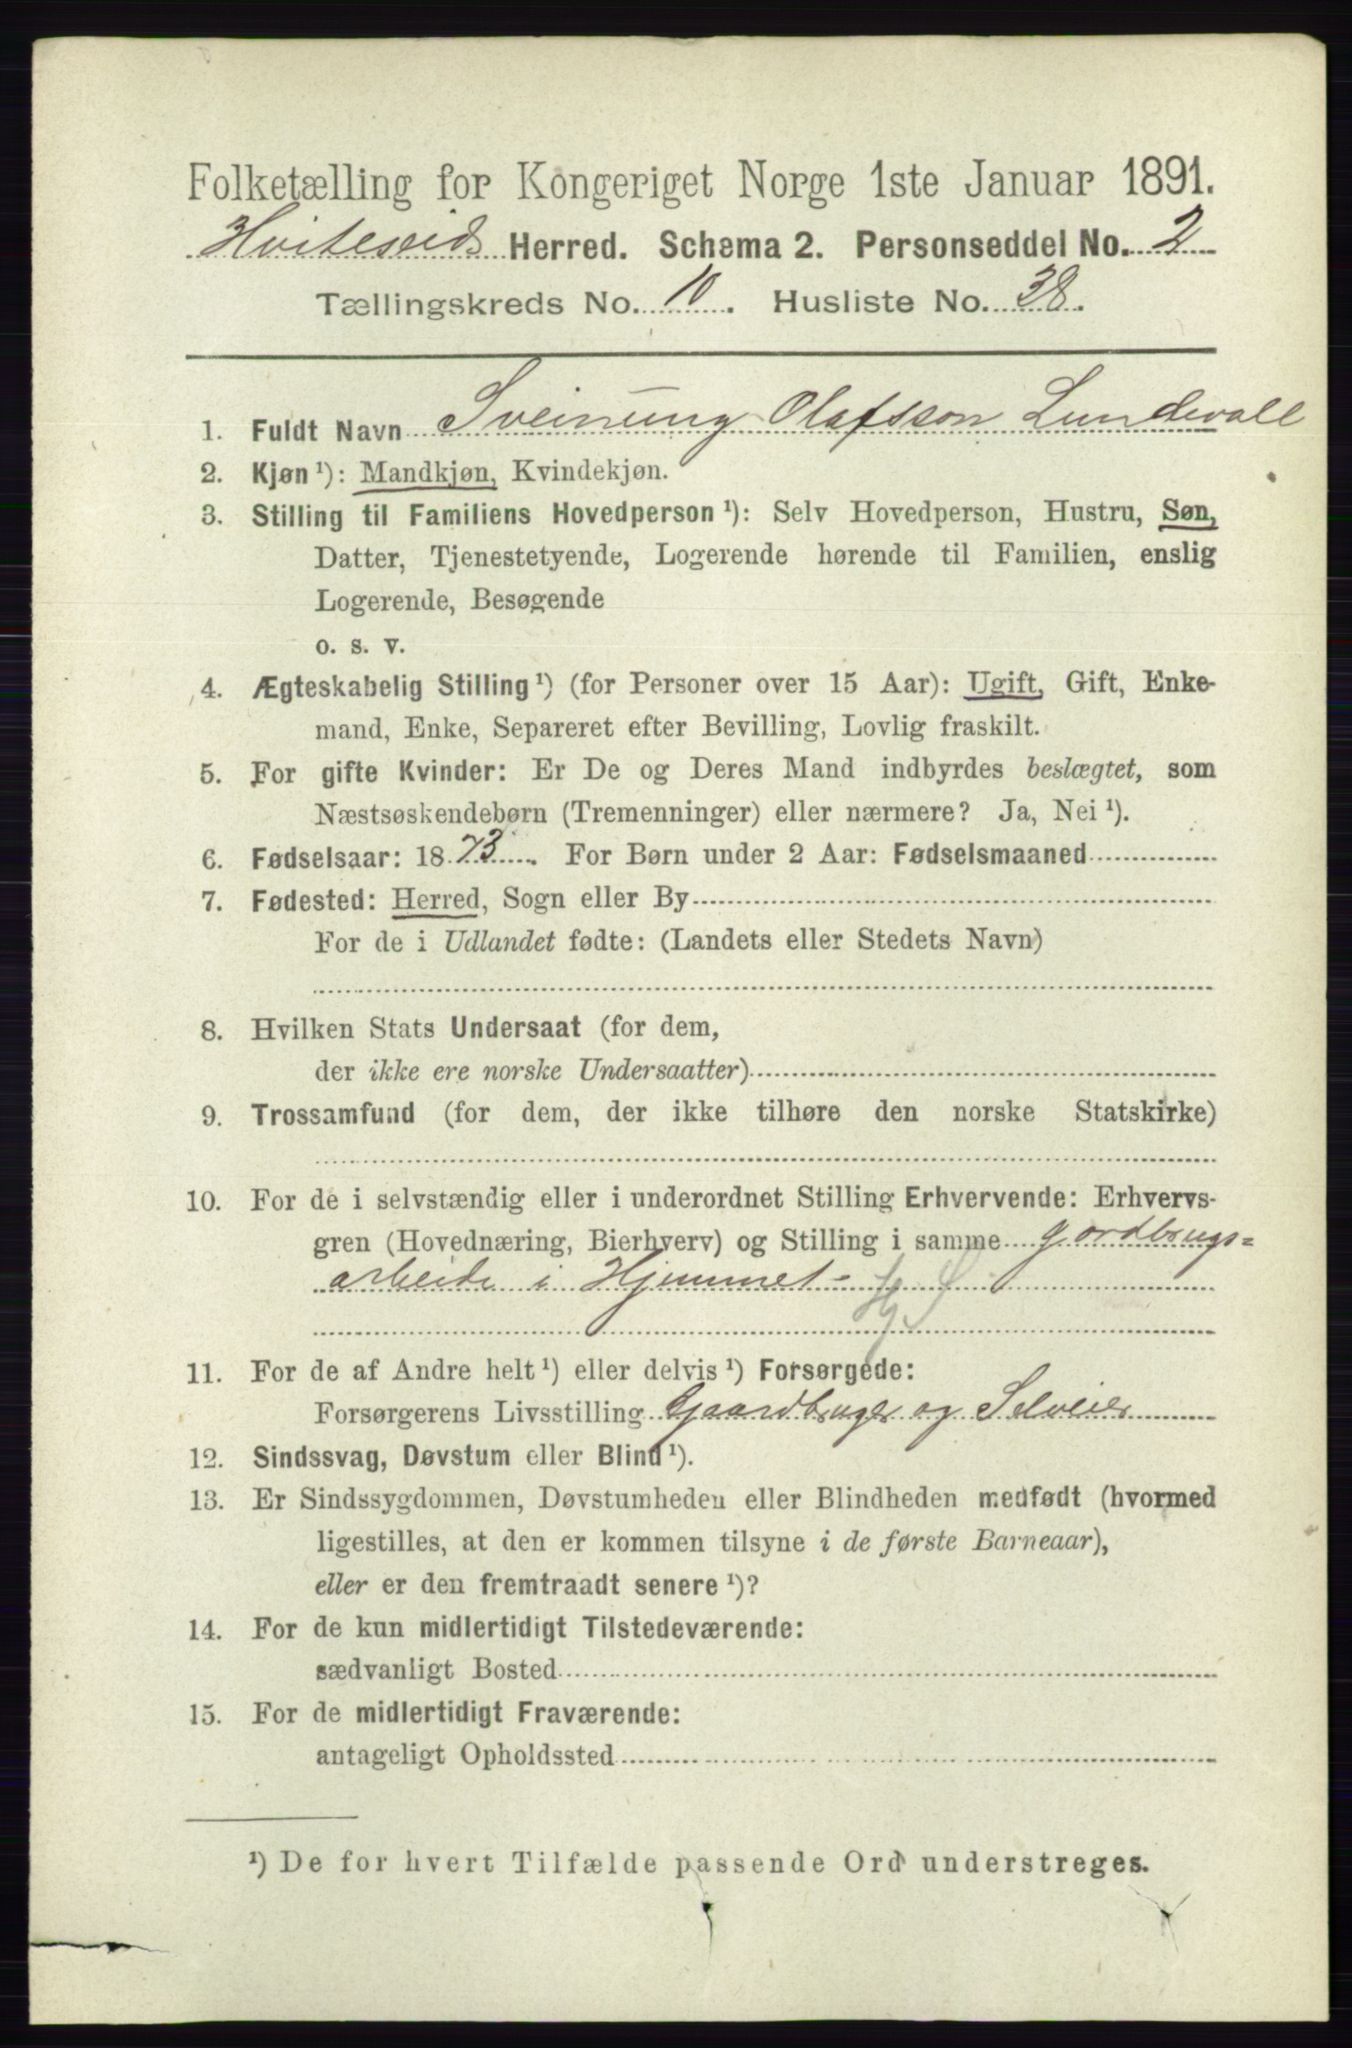 Folketælling for Kongeriget Norge 1ste Januar 1891.
Hviteseid Herred. Schema 2. Personseddel No. 2
Tællingskreds No. 10. Husliste No. 38.
1. Fuldt Navn Sveinung Olafsson Lundevall
2. Kjøn ¹): Mandkjøn, Kvindekjøn.
3. Stilling til Familiens Hovedperson ¹): Selv Hovedperson, Hustru, Søn,
Datter, Tjenestetyende, Logerende hørende til Familien, enslig
Logerende, Besøgende
o. s. v.
4. Ægteskabelig Stilling ¹) (for Personer over 15 Aar): Ugift, Gift, Enke-
mand, Enke, Separeret efter Bevilling, Lovlig fraskilt.
5. For gifte Kvinder: Er De og Deres Mand indbyrdes beslægtet, som
Næstsøskendebørn (Tremenninger) eller nærmere? Ja, Nei ¹).
6. Fødselsaar: 1873. For Børn under 2 Aar: Fødselsmaaned
7. Fødested: Herred, Sogn eller By
For de i Udlandet fødte: (Landets eller Stedets Navn)
8. Hvilken Stats Undersaat (for dem,
der ikke ere norske Undersaatter)
9. Trossamfund (for dem, der ikke tilhøre den norske Statskirke)
10. For de i selvstændig eller i underordnet Stilling Erhvervende: Erhvervs-
gren (Hovednæring, Bierhverv) og Stilling i samme gordbrugs=
arbeide i Hjemmet-
Hj S
11. For de af Andre helt ¹) eller delvis ¹) Forsørgede:
Forsørgerens Livsstilling Gaardbruger og Selveier
12. Sindssvag, Døvstum eller Blind ¹).
13. Er Sindssygdommen, Døvstumheden eller Blindheden medfødt (hvormed
ligestilles, at den er kommen tilsyne i de første Barneaar),
eller er den fremtraadt senere ¹)?
14. For de kun midlertidigt Tilstedeværende:
sædvanligt Bosted
15. For de midlertidigt Fraværende:
antageligt Opholdssted
¹) De for hvert Tilfælde passende Ord understreges.